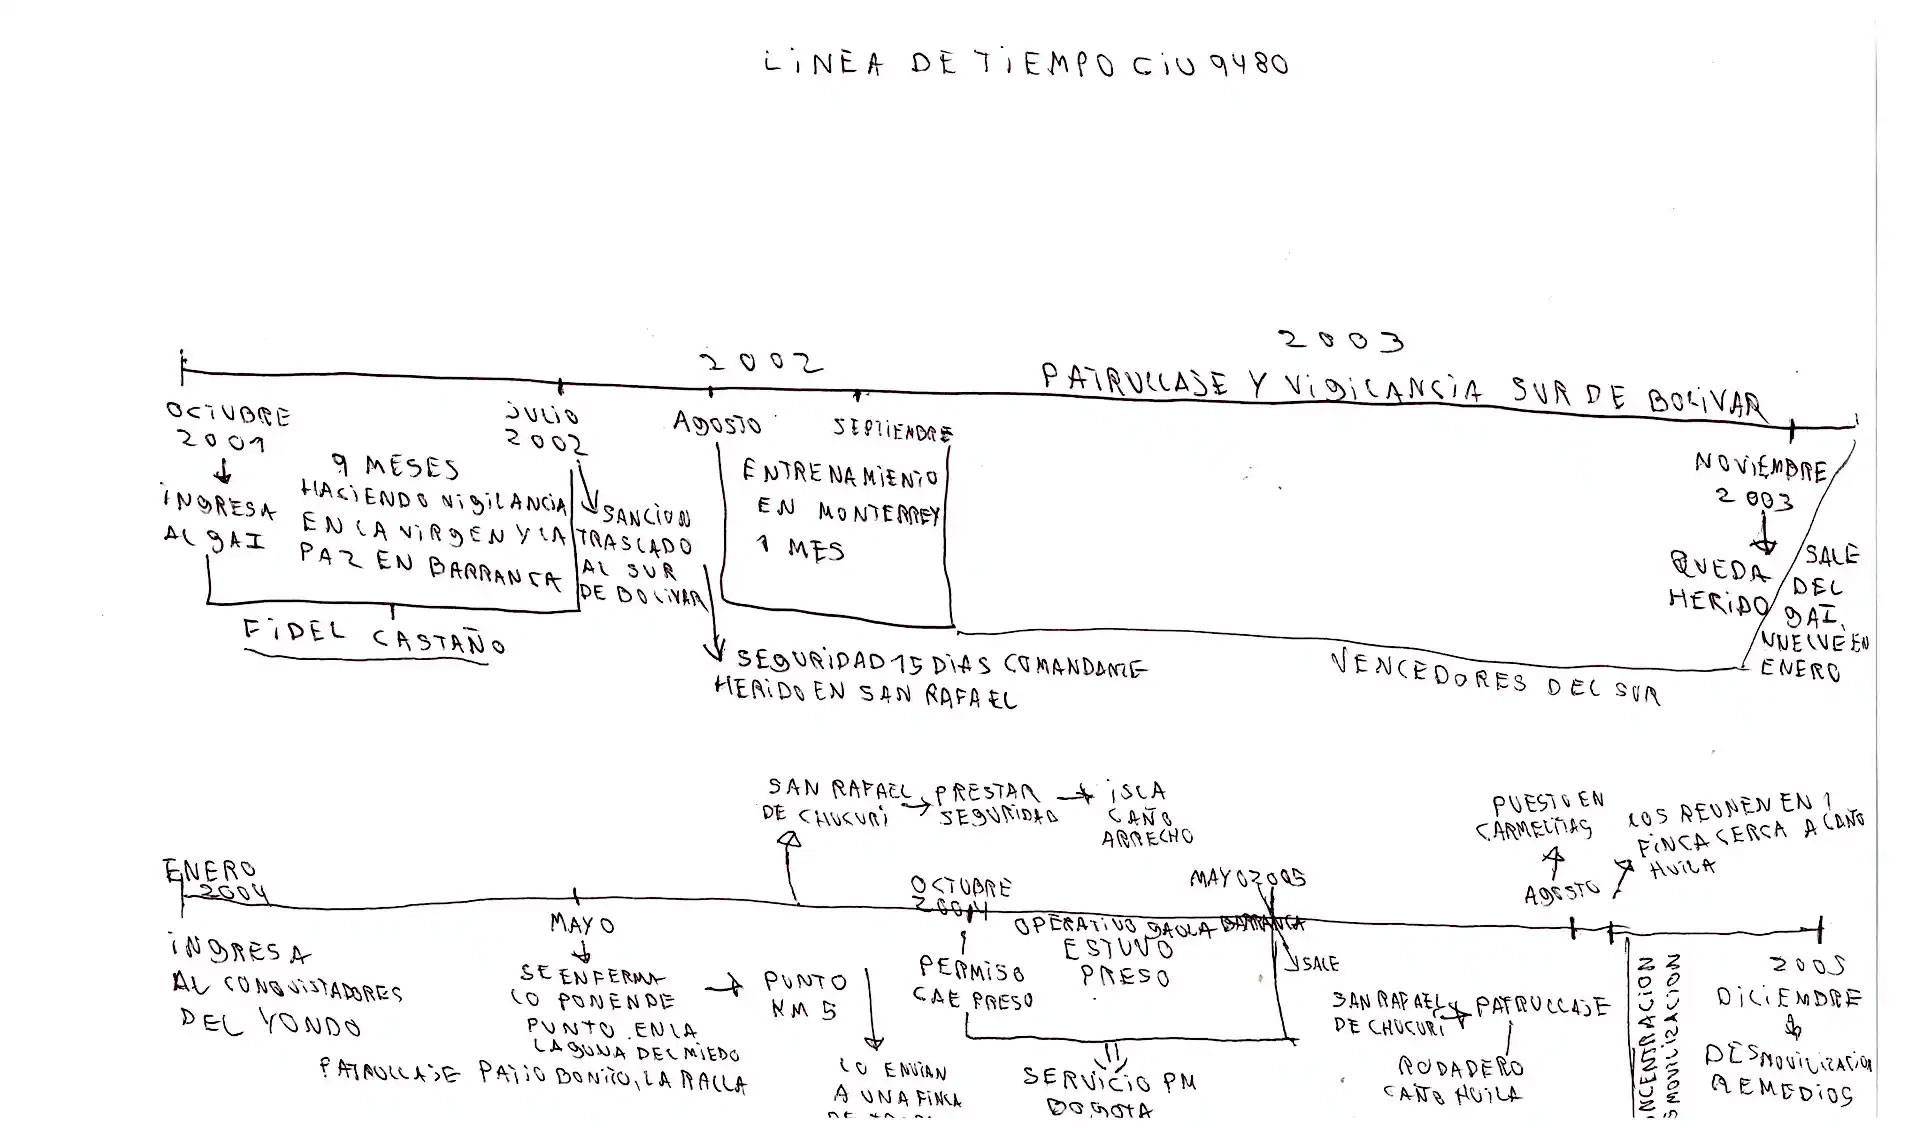 LINEA DE TIEMPO CIU 9480
2002
2003
PATRULLAJE Y VIGILANCIA SUR DE BOLIVAR
OCTUBRE
2001
INGRESA
AL GAI
9 MESES
HACIENDO VIGILANCIA
EN LA VIRGEN Y LA
PAZ EN BARRANCA
FIDEL CASTAÑO
JULIO
2002
SANCION
TRASLADO
AL SUR
DE BOLIVAR
AGOSTO
SEPTIEMBRE
ENTRENAMIENTO
EN MONTERREY
1 MES
SEGURIDAD 15 DIAS COMANDANTE
HERIDO EN SAN RAFAEL
VENCEDORES DEL SUR
NOVIEMBRE
2003
QUEDA
HERIDO
SALE
DEL
GAI,
VUELVE EN
ENERO
SAN RAFAEL
DE CHUCURI
PRESTAR
SEGURIDAD
ISLA
CAÑO
ARRECHO
PUESTO EN
CARMELITAS
LOS REUNEN EN 1
FINCA CERCA A CAÑO
HUILA
ENERO
2004
INGRESA
AL CONQUISTADORES
DEL YONDO
MAYO
SE ENFERMA
LO PONEN DE
PUNTO EN LA
LAGUNA DEL MIEDO
PATRULLAJE PATIO BONITO, LA RALLA
PUNTO
KM 5
LO ENVIAN
A UNA FINCA
OCTUBRE
2004
PERMISO
CAE PRESO
OPERATIVO GAULA BARRANCA
ESTUVO
PRESO
SERVICIO PM
BOGOTA
MAYO 2005
SALE
SAN RAFAEL
DE CHUCURI
PATRULLAJE
RODADERO
CAÑO HUILA
AGOSTO
NCENTRACION
SMOVILIZACION
2005
DICIEMBRE
DESMOVILIZACION
REMEDIOS